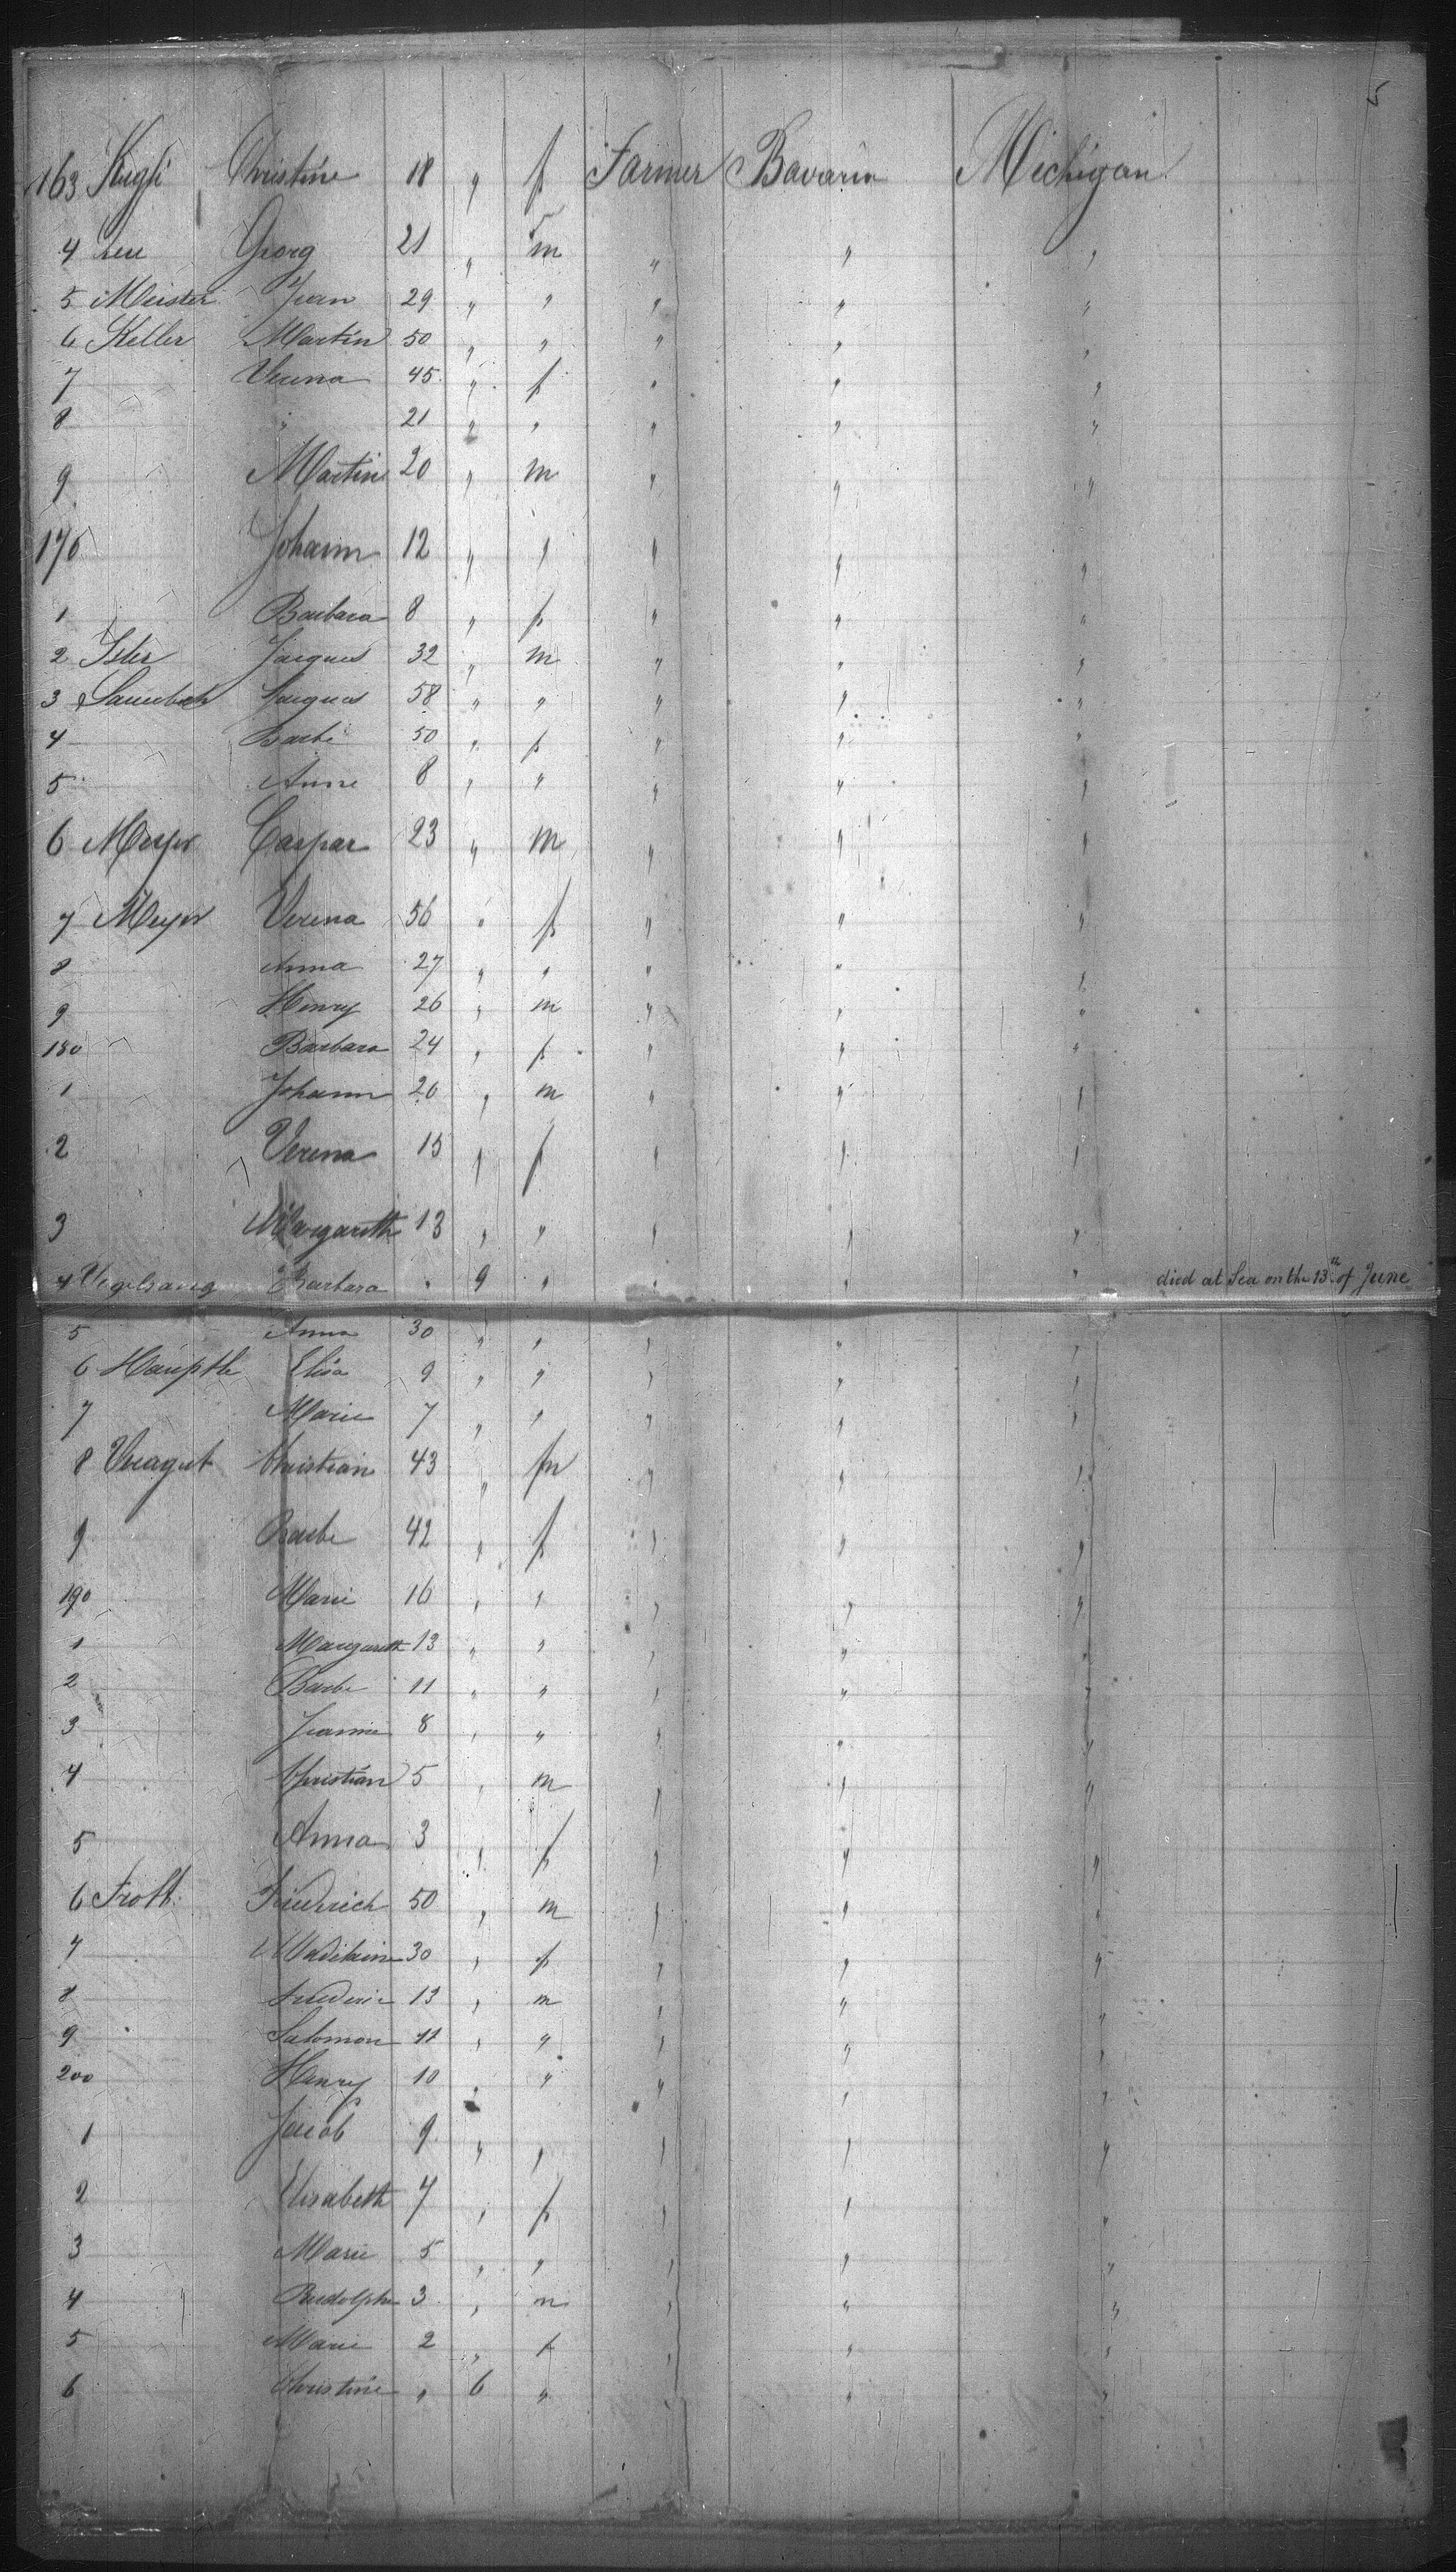 5
163 Kugli Christine 18 " f Farmer Bavaria Michigan
4 Leu Georg 21 " m " " "
5 Meister Jean 29 " " " " "
6 Keller Martin 50 " " " " "
7 Verena 45 " f " " "
8 " 21 " " " " "
9 Martin 20 " m " " "
170 Johann 12 " " " " "
1 Barbara 8 " f " " "
2 Isler Jacques 32 " m " " "
3 Jacques 58 " " " " "
4 Barbe 50 " f " " "
5 Anne 8 " " " " "
6 Meyer Caspar 23 " m " " "
7 Meyer Verena 56 " f " " "
8 Anna 27 " " " " "
9 Henry 26 " m " " "
180 Barbara 24 " f " " "
1 Johann 20 " m " " "
2 Verena 15 " f " " "
3 Margareth 13 " " " " "
4 Vogelsang Barbara " 9 " " " " died at Sea on the 13th of June
5 Anna 30 " " " " "
6 Hauptle Elisa 9 " " " " "
7 Marie 7 " " " " "
8 Veragut Christian 43 " m " " "
9 Barbe 42 " f " " "
190 Marie 16 " " " " "
1 Margareth 13 " " " " "
2 Barbe 11 " " " " "
3 Jeanne 8 " " " " "
4 Christian 5 " m " " "
5 Anna 3 " f " " "
6 Friedrich 50 " m " " "
7 Madelaine 30 " f " " "
8 Frederic 13 " m " " "
9 Salomon 11 " " " " "
200 Henry 10 " " " " "
1 Jacob 9 " " " " "
2 Elisabeth 7 " f " " "
3 Marie 5 " " " " "
4 Rudolphe 3 " m " " "
5 Marie 2 " f " " "
6 Christine " 6 " " " "